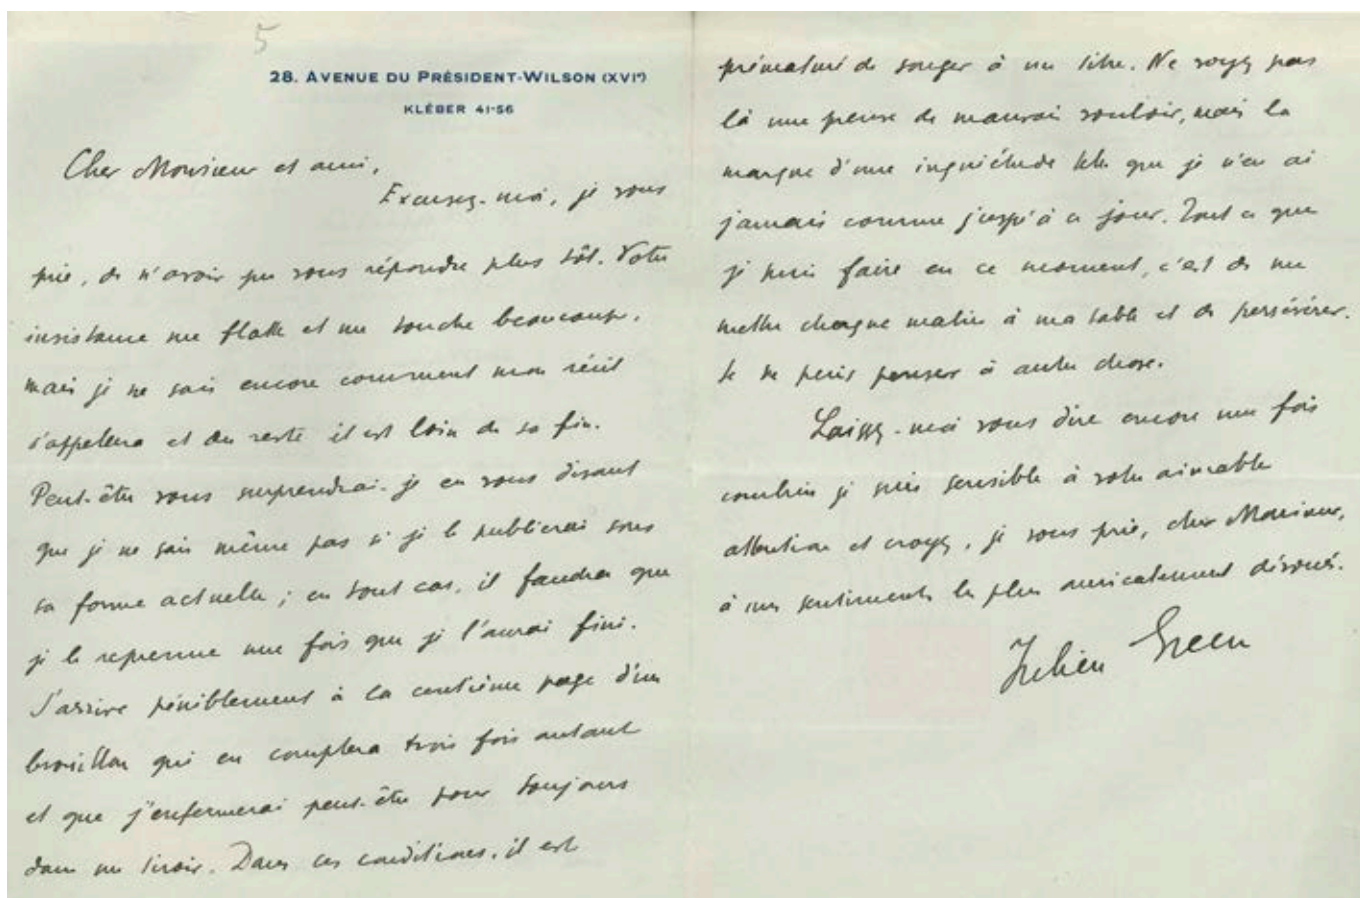 5
28. AVENUE DU PRÉSIDENT-WILSON (XVIᵉ)
KLÉBER 41-56
Cher Monsieur et ami,
Excusez-moi, je vous
prie, de n'avoir pu vous répondre plus tôt. Votre
insistance me flatte et me touche beaucoup,
mais je ne sais encore comment mon récit
s'appellera et du reste il est loin de sa fin.
Peut-être vous surprendrai-je en vous disant
que je ne sais même pas si je le publierai sous
sa forme actuelle ; en tout cas, il faudra que
je le reprenne une fois que je l'aurai fini.
J'arrive péniblement à la centième page d'un
brouillon qui en comptera trois fois autant
et que j'enfermerai peut-être pour toujours
dans un tiroir. Dans ces conditions, il est
prématuré de songer à un titre. Ne voyez pas
là une preuve de mauvais vouloir, mais la
marque d'une inquiétude telle que je n'en ai
jamais connue jusqu'à ce jour. Tout ce que
je puis faire en ce moment, c'est de me
mettre chaque matin à ma table et de persévérer.
Je ne puis penser à autre chose.
Laissez-moi vous dire encore une fois
combien je suis sensible à votre aimable
attention et croyez, je vous prie, cher Monsieur,
à mes sentiments les plus amicalement dévoués.
Julien Green